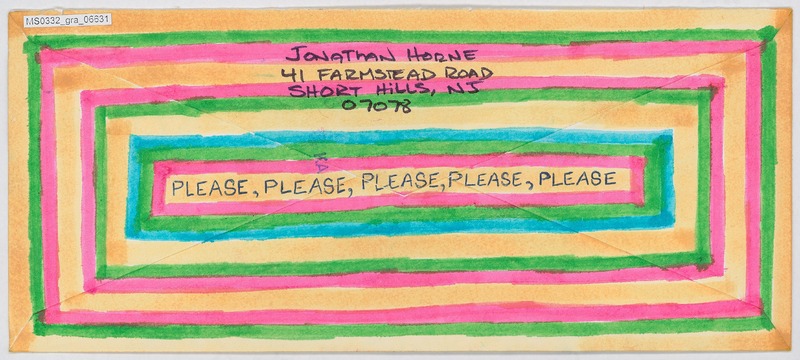 MS0332_gra_06631
JONATHAN HORNE
41 FARMSTEAD ROAD
SHORT HILLS, NJ
07078
PLEASE, PLEASE, PLEASE, PLEASE, PLEASE